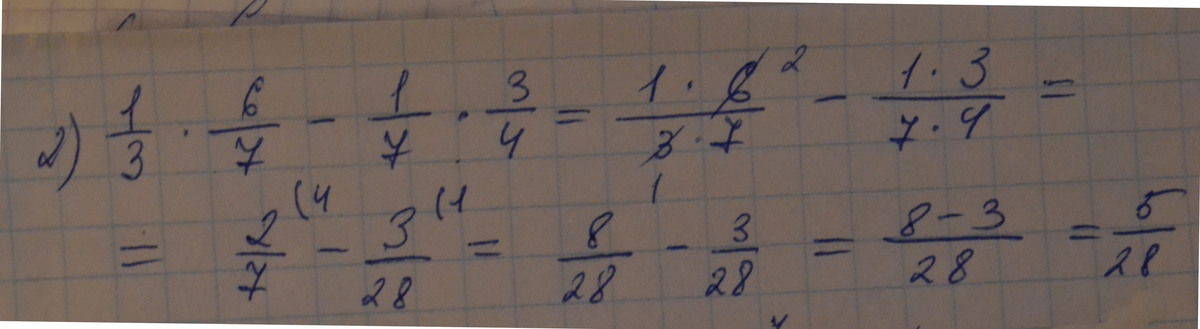 2) 1/3 · 6/7 − 1/7 · 3/4 = 1 · 6 2 / 3 · 7 1 − 1 · 3 / 7 · 4 =
= 2/7 (4 − 3/28 (1 = 8/28 − 3/28 = 8−3/28 = 5/28